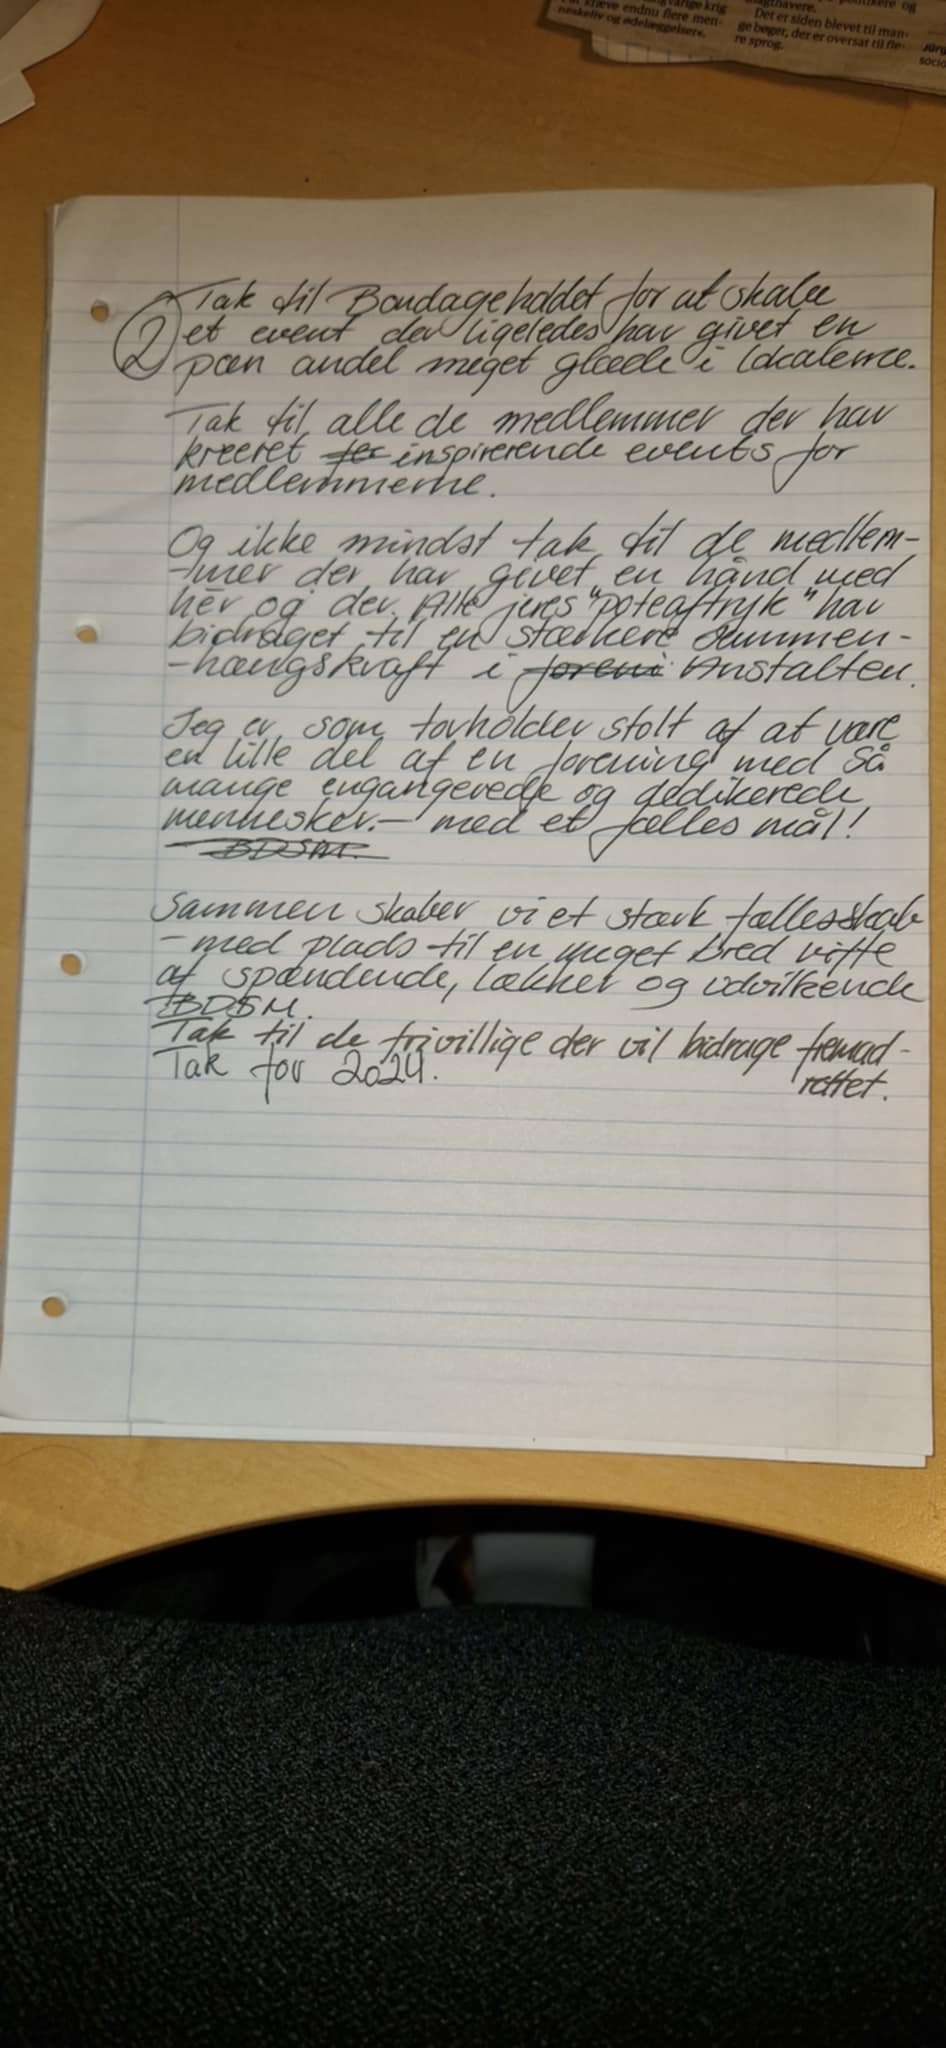 kræve endnu flere men-
neskeliv og ødelæggelser.
magthavere.
Det er siden blevet til man-
ge bøger, der er oversat til fle-
re sprog.
Jürg
socio
Tak til Bondageholdet for at skabe
② et event der ligeledes har givet en
pæn andel meget glæde i lokalerne.
Tak til alle de medlemmer der har
kreeret for inspirerende events for
medlemmerne.
Og ikke mindst tak til de medlem-
-mer der har givet en hånd med
hér og der. Alle jeres "poteaftryk" har
bidraget til en stærkere sammen-
-hængskraft i foreni Anstalten.
Jeg er som tovholder stolt af at være
en lille del af en forening med så
mange engangerede og dedikerede
mennesker. - med et fælles mål!
- BDSM.
Sammen skaber vi et stærk fællesskab
- med plads til en meget bred vifte
af spændende, lækker og udvilkende
BDSM.
Tak til de frivillige der vil bidrage fremad-
rettet.
Tak for 2024.